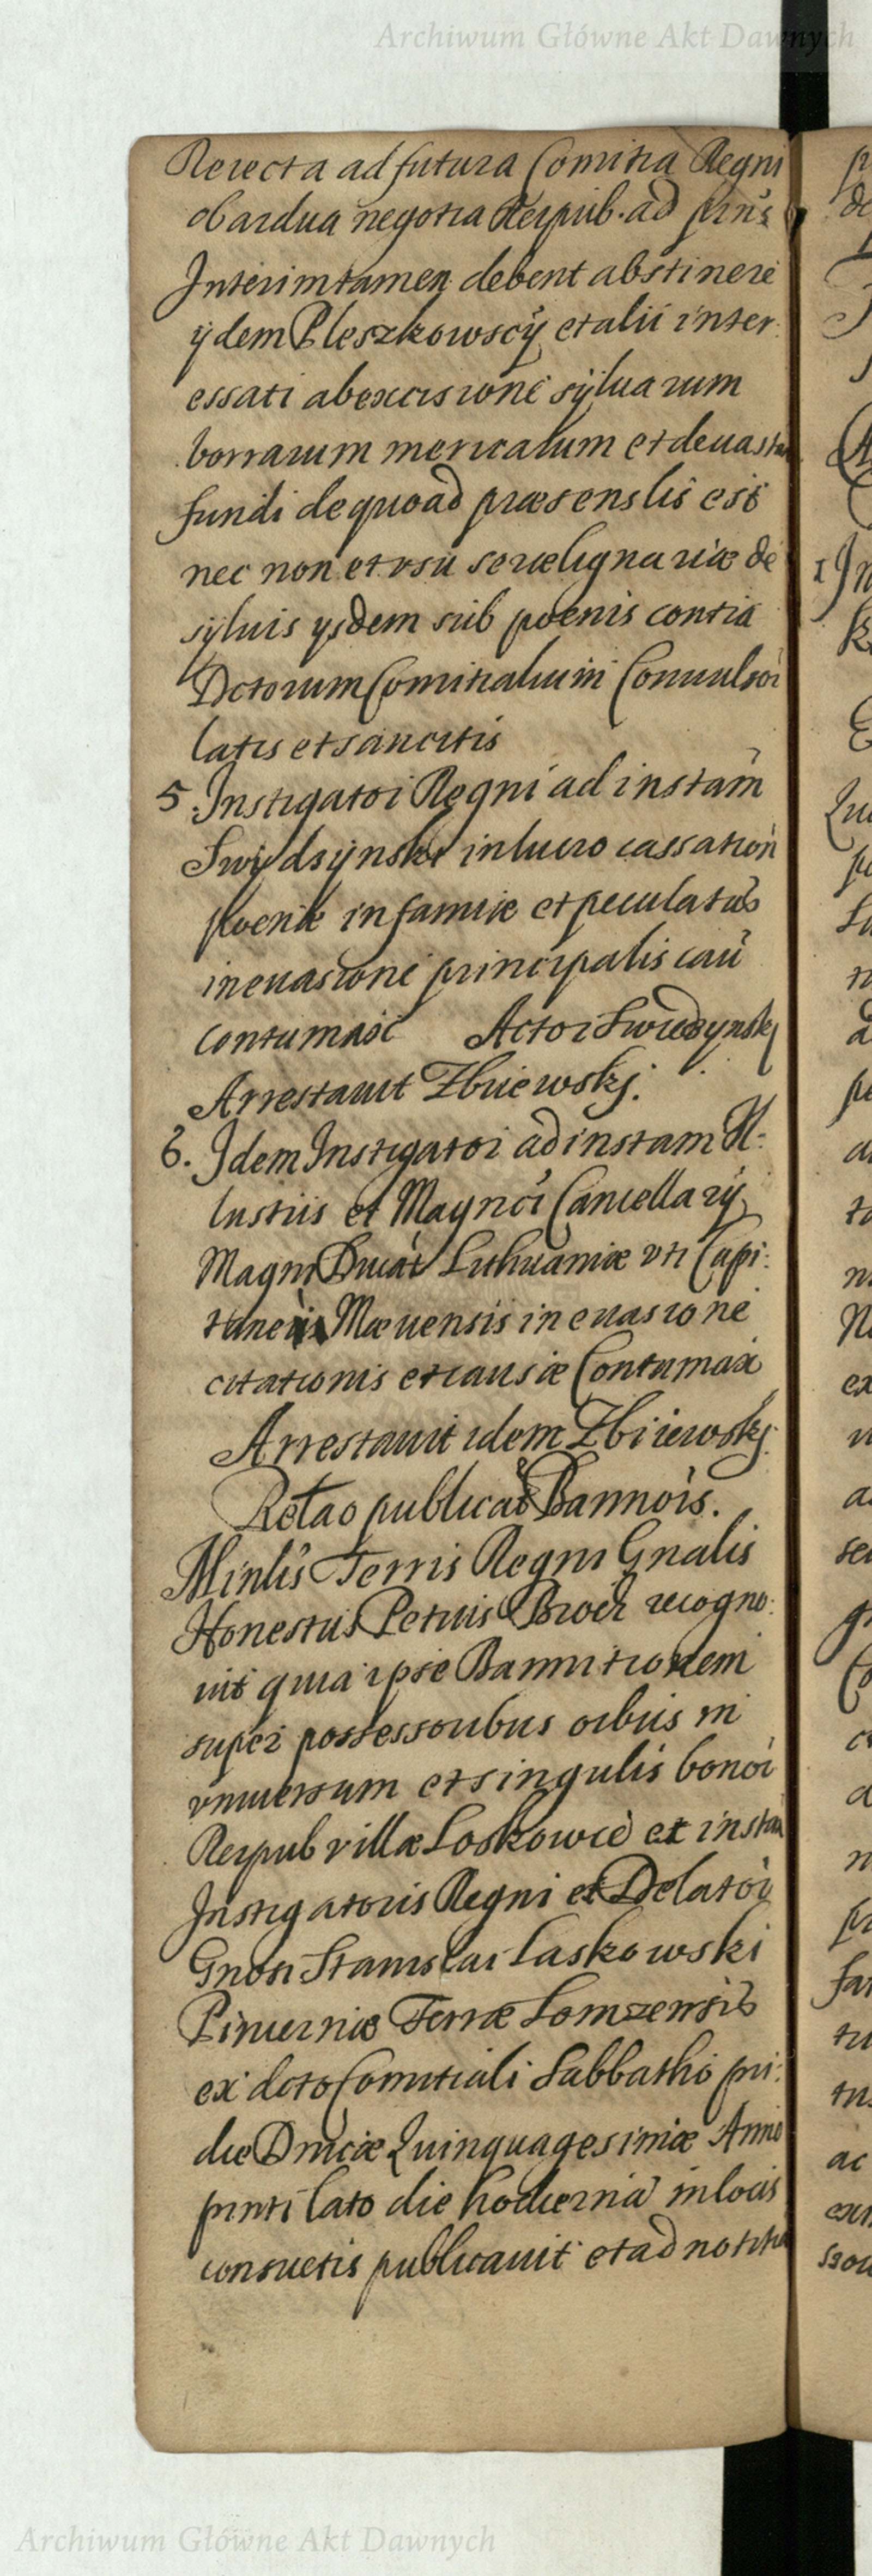 Archiwum Główne Akt Dawnych
Reiecta ad futura Comitia Regni
ob ardua negotia Reipub. ad prns
Interim tamen debent abstinere
ijdem Pleszkowscÿ et alii inter:
essati ab excisione sÿluarum
borrarum mericalum et deuastan
fundi de quo ad præsens lis est
nec non et vsu serræ lignariæ de
sÿluis ysdem sub poenis contra
Dctorum Comitialium Conuulsor
latis et sancitis
5. Instigator Regni ad instam
Swidsÿnski in lucro cassation
poenæ infamiæ et peculatus
in euasione principalis cau
contumax Actor Swidzynskj
Arrestauit Zbiiewskj.
6. Idem Instigator ad instam Il:
lustris et Magnci Cancellarÿ
Magni Ducat Lithuaniæ vti Capi:
tanei Mæuensis in euasione
citationis et causæ Contumax
Arrestauit idem Zbiiewskj
Relao publicae Bannois.
Minlis Terris Regni Gnalis
Honestus Petrus recogno:
uit quia ipse Bannitionem
super possessoribus oibus in
vniuersum et singulis bonor
Reipub villæ Loskowice ex instan
Instigatoris Regni et Delator
Gnosi Stanislai Laskowski
Pincernæ Terræ Lomzensis
ex dcto Comitiali Sabbatho pri:
die Dnicæ Quinquagesimæ Anno
pnti lato die hodierna in locis
consuetis publicauit et ad notitia
Archiwum Główne Akt Dawnych